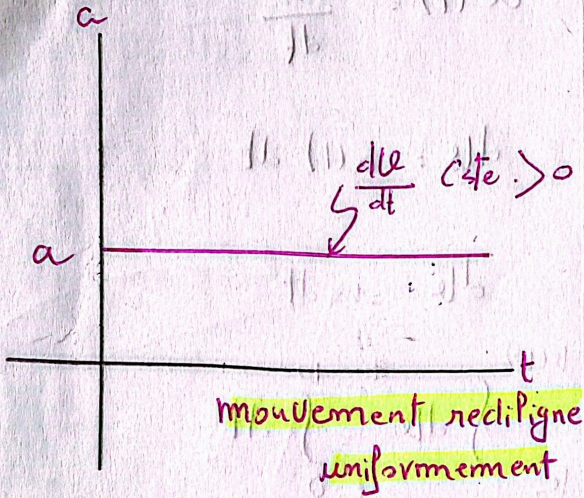 a
dv/dt Cste. > 0
a
t
mouvement rectiligne
uniformement